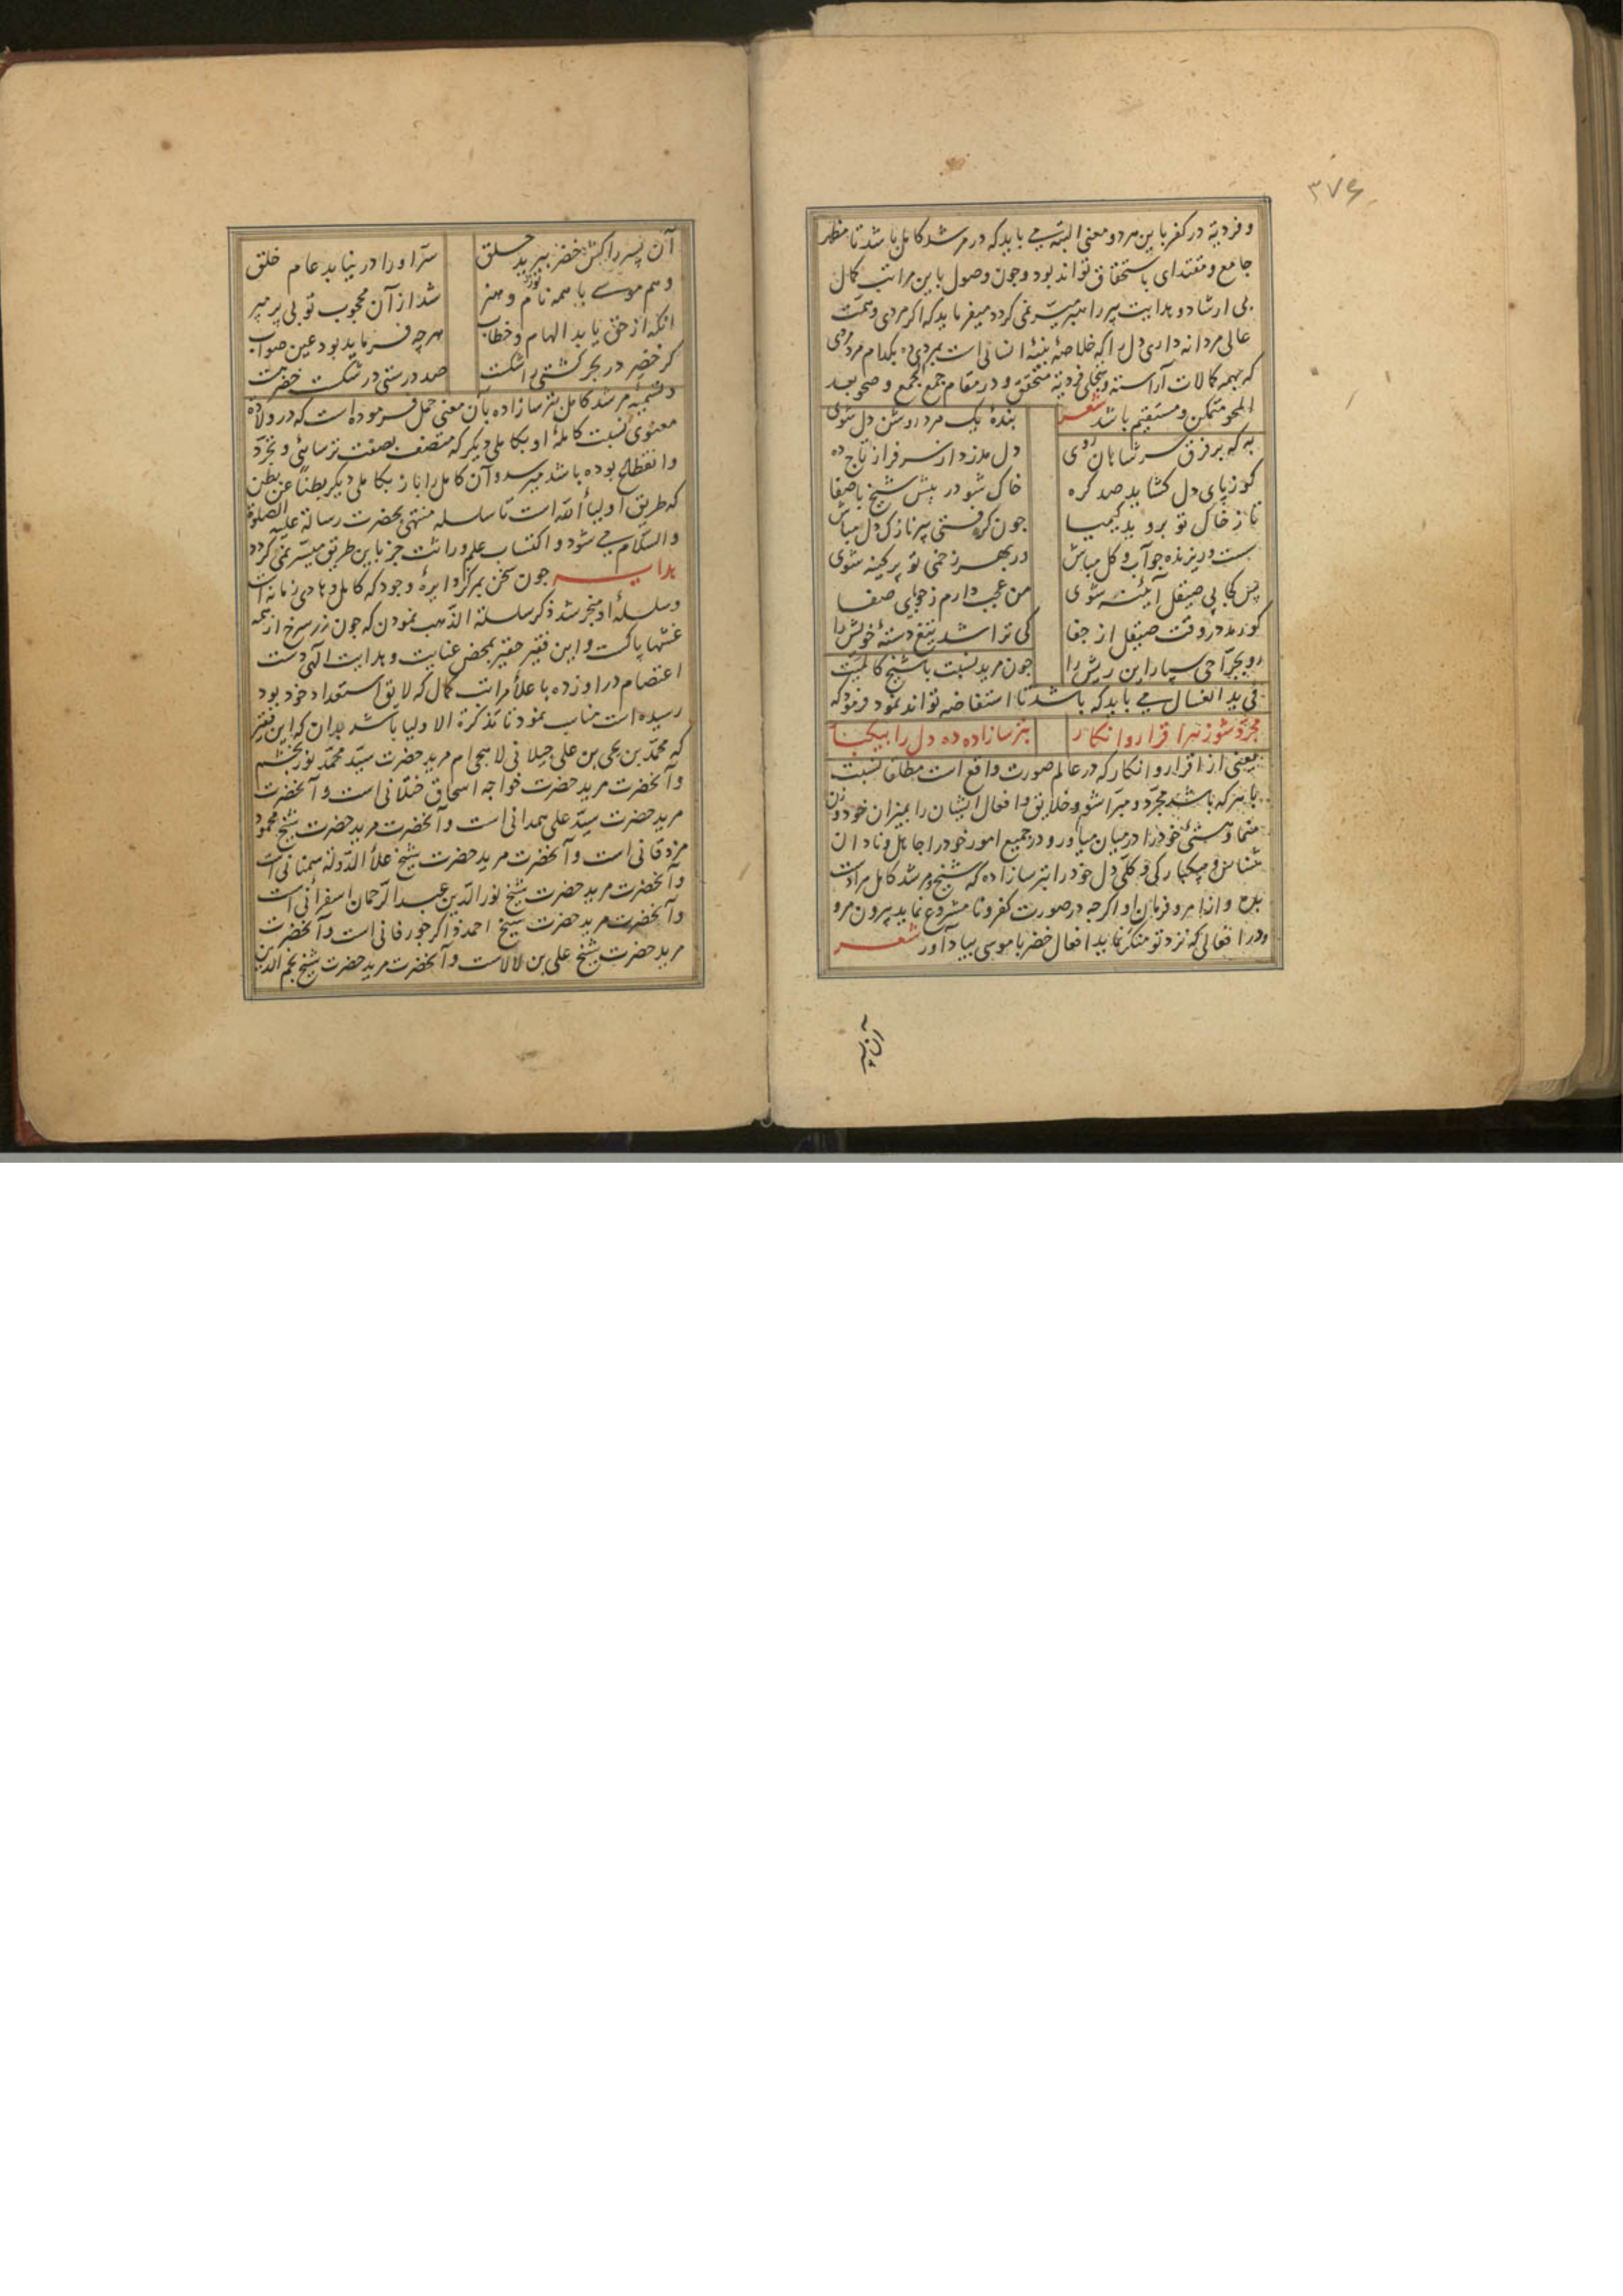 ٣٧٤
و فردیة در کفر باین هر دو معنی البته می باید که در مرشد کامل باشد تا مظهر
جامع و مقتدای باستحقاق تواند بود و چون وصول باین مراتب کمال
بی ارشاد و هدایت پیر راهبر میسر نمی کردد میفرماید که اکر مردی و همت
عالی مردانه داری دل را که خلاصهٔ بنیهٔ انسانی است بمردی ده بکدام مرد مردی
که بهمه کالات آراسته و بتجلی فردیة متحقق و در مقام جمع الجمع و صحو بعد
المحو متمکن و مستقیم باشد شعر
بندهٔ یک مرد روشن دل شوی
به که بر فرق سر شاهان روی
دل مدزد از سرفراز تاج ده
کو ز پای دل کشاید صد کره
خاک شو در پیش شیخ باصفا
تا ز خاک تو بروید کیمیا
چون کرفتی پیر نازک دل مباش
سست و ریزنده چو آب و کل مباش
ور بهر زخمی تو پر کینه شوی
پس کجا بی صیقل آیینه شوی
من عجب دارم ز جویای صفا
کو رمد در وقت صیقل از جفا
کی تراشد تیغ دستهٔ خویش را
رو بجراحی سپار این ریش را
چون مرید نسبت با شیخ کالمیت
فی ید الغسال می باید که باشد تا استفاضه تواند نمود فرمود که
مجرد شو ز هر اقرار و انکار
بترسازاده ده دل را بیکبار
یعنی از اقرار و انکار که در عالم صورت واقع است مطلقا نسبت
با هر که باشد مجرد و مبرا شو و خلایق و افعال ایشان را بمیزان خود وزن
منما و هستی خود را در میان میاور و در جمیع امور خود را جاهل و نادان
شناس و بیکبارکی و کلی دل خود را بترسازاده که شیخ و مرشد کامل مرادست
بده و از امر و فرمان او اکرچه در صورت کفر و نا مشروع نماید بیرون مرو
و در افعالی که نزد تو منکر نماید افعال خضر با موسی بیاد آور شعر
آن پسر
آن پسر را کش خضر ببرید حلق
سر او را در نیابد عام خلق
وهم موسی با همه نور و هنر
شد از آن محجوب تو بی پر مپر
انکه از حق یابد الهام و خطاب
هرچه فرماید بود عین صواب
کر خضر در بحر کشتی را شکست
صد درستی در شکست خضر هست
و تسمیهٔ مرشد کامل بترسازاده بآن معنی حمل فرموده است که در ولادة
معنوی نسبت کاملهٔ او بکاملی دیکر که متصف بصفت ترسائی و تجرد
و انقطاع بوده باشد میرسد و آن کامل را باز بکاملی دیکر بطنا عن بطن
که طریق اولیاء الله است تا سلسله منتهی بحضرت رسالة علیه الصلوة
والسلام می شود و اکتساب علم وراثت جز باین طریق میسر نمی کردد
هدایه چون سخن بمرکز دایرهٔ وجود که کامل و هادی زمانه است
و سلسلهٔ او منجر شد ذکر سلسلة الذهب نمودن که چون زر سرخ از همه
غشها پاکست و این فقیر حقیر بمحض عنایت و هدایت الهی دست
اعتصام در او زده باعلاء مراتب کمال که لایق استعداد خود بود
رسیده است مناسب نمود تا تذکرة الاولیا باشد بدان که این فقیر
که محمد بن یحیی بن علی جیلانی لاهجی ام مرید حضرت سید محمد نوربخشم
و آنحضرت مرید حضرت خواجه اسحاق ختلانی است و آنحضرت
مرید حضرت سید علی همدانی است و آنحضرت مرید حضرت شیخ محمود
مزدقانی است و آنحضرت مرید حضرت شیخ علاء الدوله سمنانی است
و آنحضرت مرید حضرت شیخ نورالدین عبدالرحمان اسفرائنی است
و آنحضرت مرید حضرت شیخ احمد ذاکر جورفانی است و آنحضرت
مرید حضرت شیخ علی بن لالاست و آنحضرت مرید حضرت شیخ نجم الدین